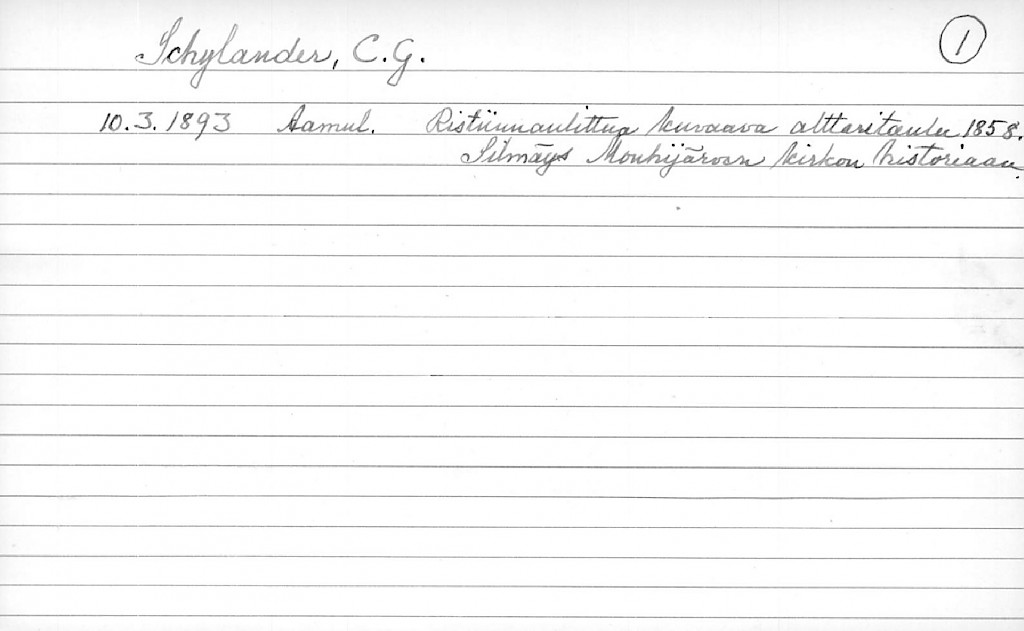 Schylander, C.G.
1
10.3.1893 Aamul. Ristiinnaulittua kuvaava alttaritaulu 1858.
Silmäys Mouhijärven kirkon historiaan.